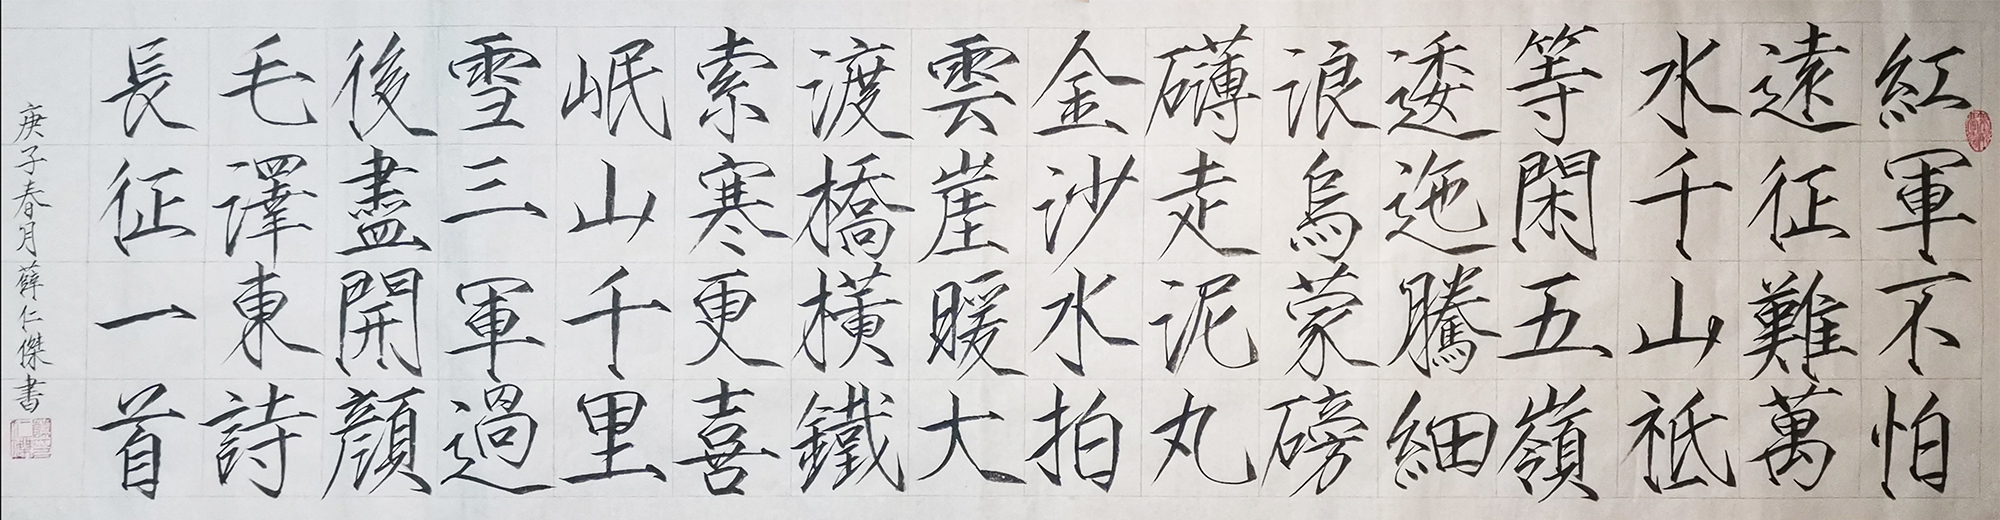 紅軍不怕
遠征難萬
水千山祗
等閑五嶺
逶迤騰細
浪烏蒙磅
礴走泥丸
金沙水拍
雲崖暖大
渡橋橫鐵
索寒更喜
岷山千里
雪三軍過
後盡開顏
毛澤東詩
長征一首
庚子春月薛仁傑書